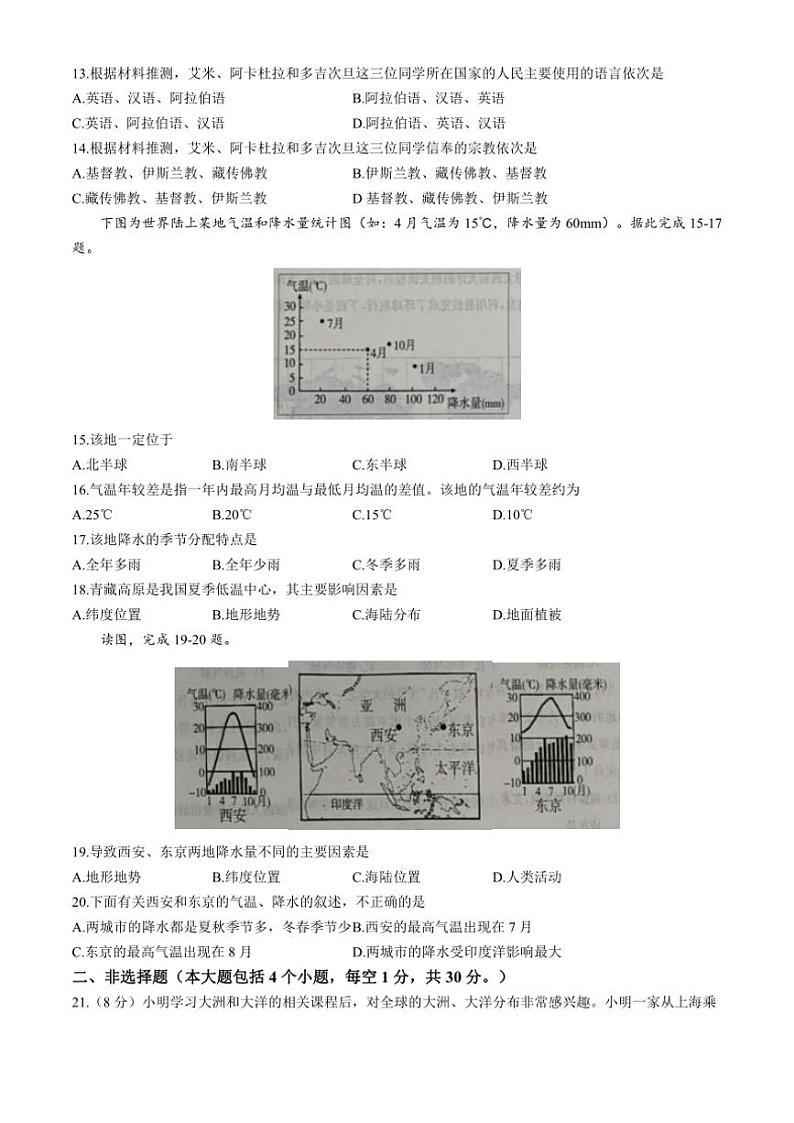 13.根据材料推测，艾米、阿卡杜拉和多吉次旦这三位同学所在国家的人民主要使用的语言依次是
A.英语、汉语、阿拉伯语 B.阿拉伯语、汉语、英语
C.英语、阿拉伯语、汉语 D.阿拉伯语、英语、汉语
14.根据材料推测，艾米、阿卡杜拉和多吉次旦这三位同学信奉的宗教依次是
A.基督教、伊斯兰教、藏传佛教 B.伊斯兰教、藏传佛教、基督教
C.藏传佛教、基督教、伊斯兰教 D 基督教、藏传佛教、伊斯兰教
下图为世界陆上某地气温和降水量统计图（如：4 月气温为 15℃，降水量为 60mm）。据此完成 15-17
题。
气温(℃)
30
25 7月
20
15 4月 10月
10 1月
5
0
20 40 60 80 100 120 降水量(mm)
15.该地一定位于
A.北半球 B.南半球 C.东半球 D.西半球
16.气温年较差是指一年内最高月均温与最低月均温的差值。该地的气温年较差约为
A.25℃ B.20℃ C.15℃ D.10℃
17.该地降水的季节分配特点是
A.全年多雨 B.全年少雨 C.冬季多雨 D.夏季多雨
18.青藏高原是我国夏季低温中心，其主要影响因素是
A.纬度位置 B.地形地势 C.海陆分布 D.地面植被
读图，完成 19-20 题。
气温(℃) 降水量(毫米)
30 400
20 300
10 200
0 100
-10 0
1 4 7 10(月)
西安
亚 洲
西安 东京
太平洋
印度洋
气温(℃) 降水量(毫米)
30 400
20 300
10 200
0 100
-10 0
1 4 7 10(月)
东京
19.导致西安、东京两地降水量不同的主要因素是
A.地形地势 B.纬度位置 C.海陆位置 D.人类活动
20.下面有关西安和东京的气温、降水的叙述，不正确的是
A.两城市的降水都是夏秋季节多，冬春季节少B.西安的最高气温出现在 7 月
C.东京的最高气温出现在 8 月 D.两城市的降水受印度洋影响最大
二、非选择题（本大题包括 4 个小题，每空 1 分，共 30 分。）
21.（8 分）小明学习大洲和大洋的相关课程后，对全球的大洲、大洋分布非常感兴趣。小明一家从上海乘